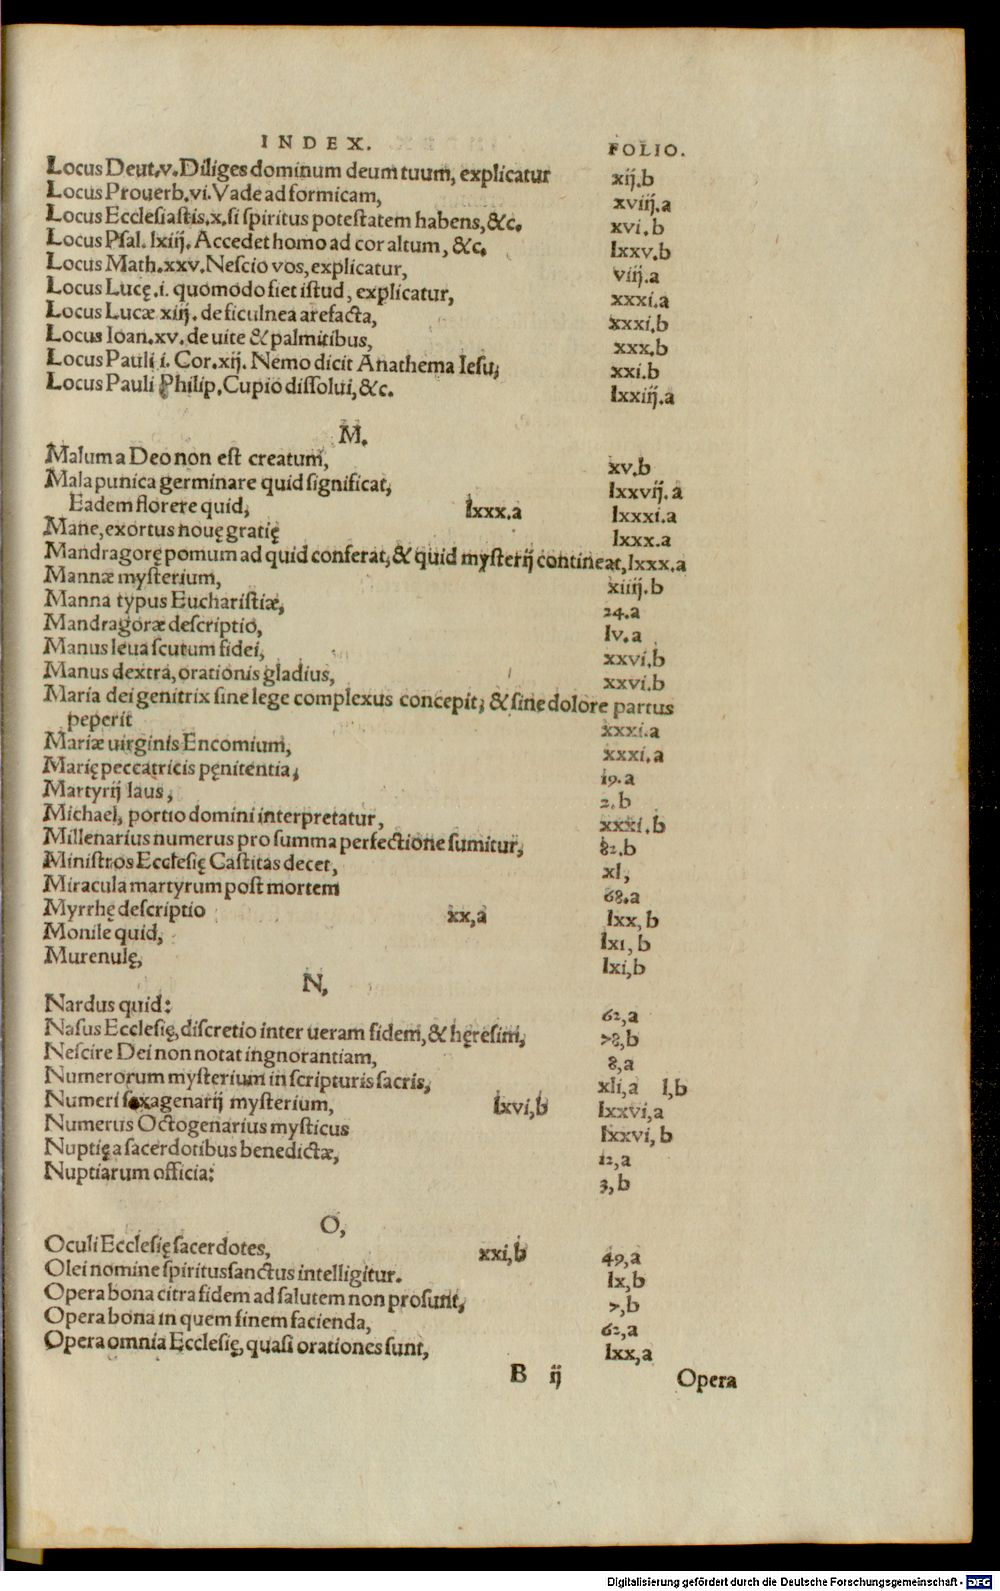 INDEX. FOLIO.
Locus Deut.v. Diliges dominum deum tuum, explicatur xij.b
Locus Prouerb.vi. Vade ad formicam, xviij.a
Locus Ecclesiastis.x.si spiritus potestatem habens, &c. xvi.b
Locus Psal. lxiij. Accedet homo ad cor altum, &c. lxxv.b
Locus Math.xxv. Nescio vos, explicatur, viij.a
Locus Lucę.i. quomodo fiet istud, explicatur, xxxi.a
Locus Lucæ xiij. de ficulnea arefacta, xxxi.b
Locus Ioan.xv. de uite & palmitibus, xxx.b
Locus Pauli i. Cor.xij. Nemo dicit Anathema Iesu, xxi.b
Locus Pauli Philip. Cupio dissolui, &c. lxxiij.a
M.
Malum a Deo non est creatum, xv.b
Mala punica germinare quid significat, lxxvij.a
Eadem florere quid, lxxx.a lxxxi.a
Mane, exortus nouę gratię lxxx.a
Mandragorę pomum ad quid conferat, & quid mysterij contineat, lxxx.a
Mannæ mysterium, xiiij.b
Manna typus Eucharistiæ, 24.a
Mandragoræ descriptio, lv.a
Manus leua scutum fidei, xxvi.b
Manus dextra, orationis gladius, xxvi.b
Maria dei genitrix sine lege complexus concepit, & sine dolore partus
peperit xxxi.a
Mariæ uirginis Encomium, xxxi.a
Marię peccatricis pęnitentia, 19.a
Martyrij laus, 2.b
Michael, portio domini interpretatur, xxxi.b
Millenarius numerus pro summa perfectione sumitur, 82.b
Ministros Ecclesię Castitas decet, xl,
Miracula martyrum post mortem 68.a
Myrrhę descriptio xx,a lxx,b
Monile quid, lxi,b
Murenulę, lxi,b
N,
Nardus quid: 62,a
Nasus Ecclesię, discretio inter ueram fidem, & hęresim, 78,b
Nescire Dei non notat ingnorantiam, 8,a
Numerorum mysterium in scripturis sacris, xli,a l,b
Numeri sexagenarij mysterium, lxvi,b lxxvi,a
Numerus Octogenarius mysticus lxxvi,b
Nuptię a sacerdotibus benedictæ, 12,a
Nuptiarum officia: 3,b
O,
Oculi Ecclesię sacerdotes, xxi,b 49,a
Olei nomine spiritussanctus intelligitur. lx,b
Opera bona citra fidem ad salutem non prosunt, 7,b
Opera bona in quem finem facienda, 62,a
Opera omnia Ecclesię, quasi orationes sunt, lxx,a
B ij Opera
Digitalisierung gefördert durch die Deutsche Forschungsgemeinschaft - DFG